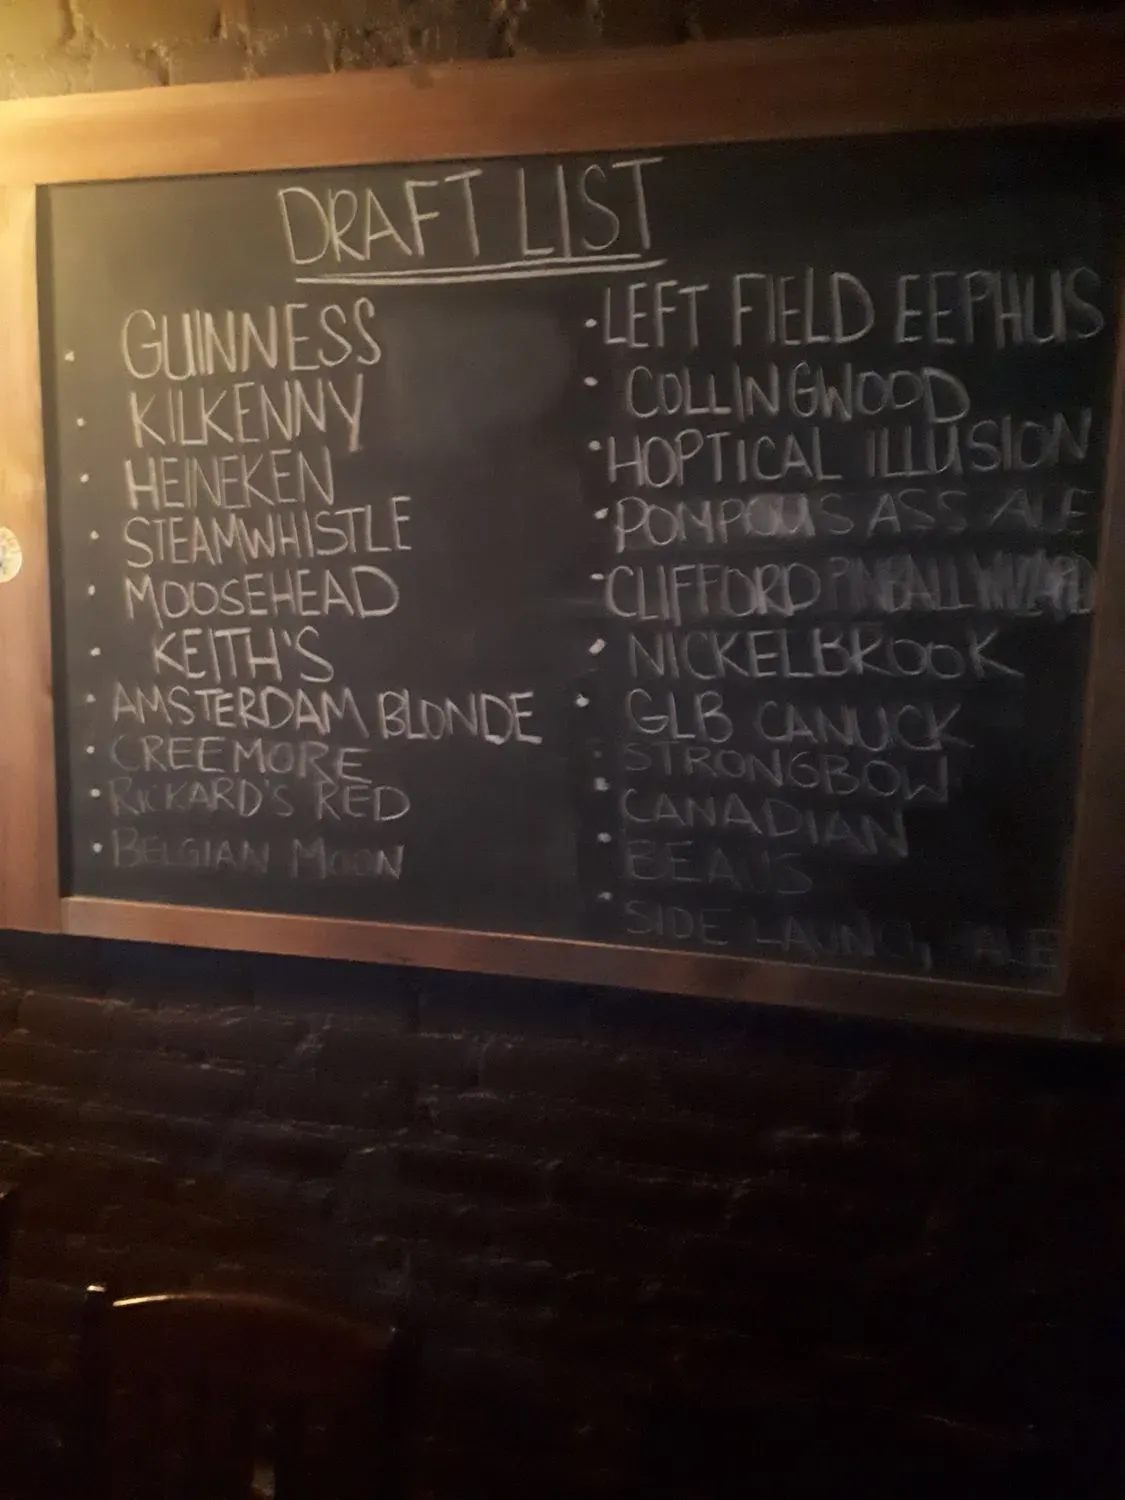 DRAFT LIST
• GUINNESS
• KILKENNY
• HEINEKEN
• STEAMWHISTLE
• MOOSEHEAD
• KEITH'S
• AMSTERDAM BLONDE
• CREEMORE
• RICKARD'S RED
• BELGIAN MOON
• LEFT FIELD EEPHUS
• COLLINGWOOD
• HOPTICAL ILLUSION
• POMPOUS ASS ALE
• CLIFFORD PINBALL WIZARD
• NICKELBROOK
• GLB CANUCK
• STRONGBOW
• CANADIAN
• BEAUS
• SIDE LAUNCH ALE